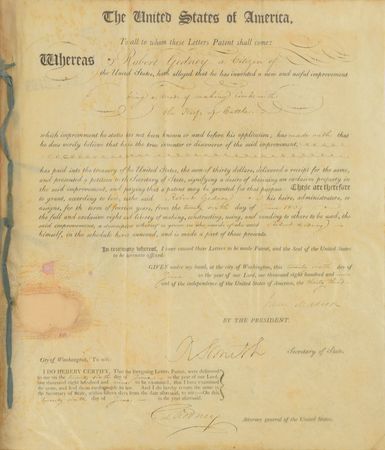 The United States of America,
To all to whom these Letters Patent shall come:
Whereas Robert Gedney a Citizen of
the United States, hath alleged that he has invented a new and useful improvement
being a mode of making Combs with
the Hoofs of Cattle
which improvement he states has not been known or used before his application; has made oath that
he does verily believe that he is the true inventor or discoverer of the said improvement,
has paid into the treasury of the United States, the sum of thirty dollars, delivered a receipt for the same,
and presented a petition to the Secretary of State, signifying a desire of obtaining an exclusive property in
the said improvement, and praying that a patent may be granted for that purpose: These are therefore
to grant, according to law, to the said Robert Gedney his heirs, administrators, or
assigns, for the term of fourteen years, from the twenty sixth day of
the full and exclusive right and liberty of making, constructing, using, and vending to others to be used, the
said improvement, a description whereof is given in the words of the said Robert Gedney
himself, in the schedule hereto annexed, and is made a part of these presents.
In testimony whereof, I have caused these Letters to be made Patent, and the Seal of the United States
to be hereunto affixed.
GIVEN under my hand, at the city of Washington, this twenty sixth day of
in the year of our Lord, one thousand eight hundred and nine
and of the independence of the United States of America, the thirty third.
James Madison
BY THE PRESIDENT.
R Smith Secretary of State.
City of Washington, To wit:
I DO HEREBY CERTIFY, That the foregoing Letters Patent, were delivered
to me on the twenty sixth day of in the year of our Lord,
one thousand eight hundred and nine to be examined; that I have examined
the same, and find them conformable to law. And I do hereby return the same to the
Secretary of State, within fifteen days from the date aforesaid, to wit:—On this
twenty sixth day of in the year aforesaid.
C A Rodney
Attorney general of the United States.